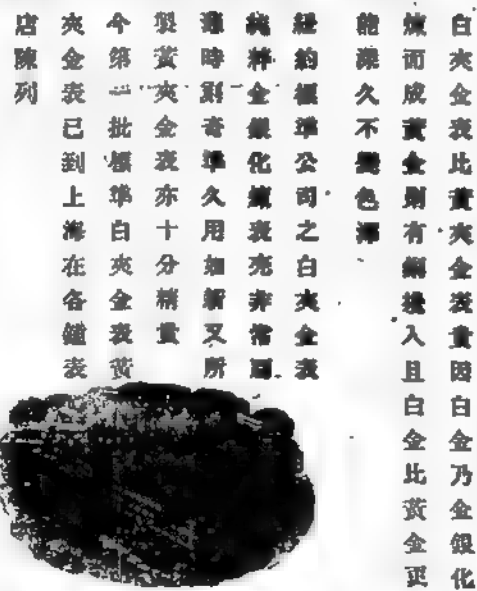 白夾金表比黃夾金表貴因白金乃金銀化
煉而成黃金則有銅攙入且白金比黃金更
能深久不變色澤
紐約標準公司之白夾金表
純粹金銀化煉表壳非常
時刻奇準久用如新又所
製黃夾金表亦十分精
今第一批標準白夾金表黃
夾金表已到上海在各鐘表
店陳列